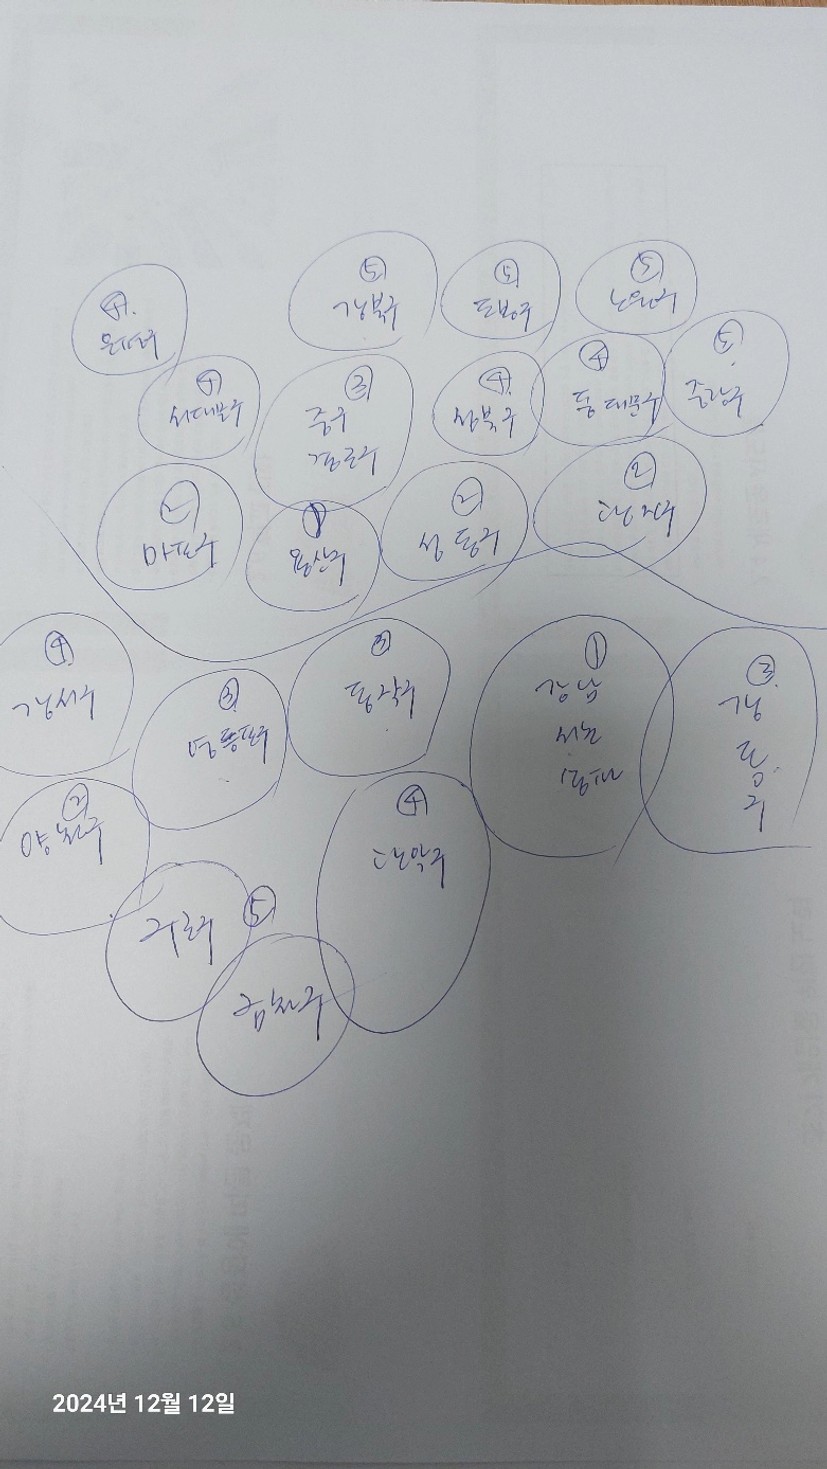 ⑤
강북구
⑤
도봉구
⑤
노원구
④
은평구
④
서대문구
③
중구
종로구
④
성북구
④
동대문구
⑤
중랑구
②
마포구
①
용산구
②
성동구
②
광진구
④
강서구
③
영등포구
③
동작구
①
강남
서초
송파
③
강
동
구
②
양천구
④
관악구
구로구
⑤
금천구
2024년 12월 12일